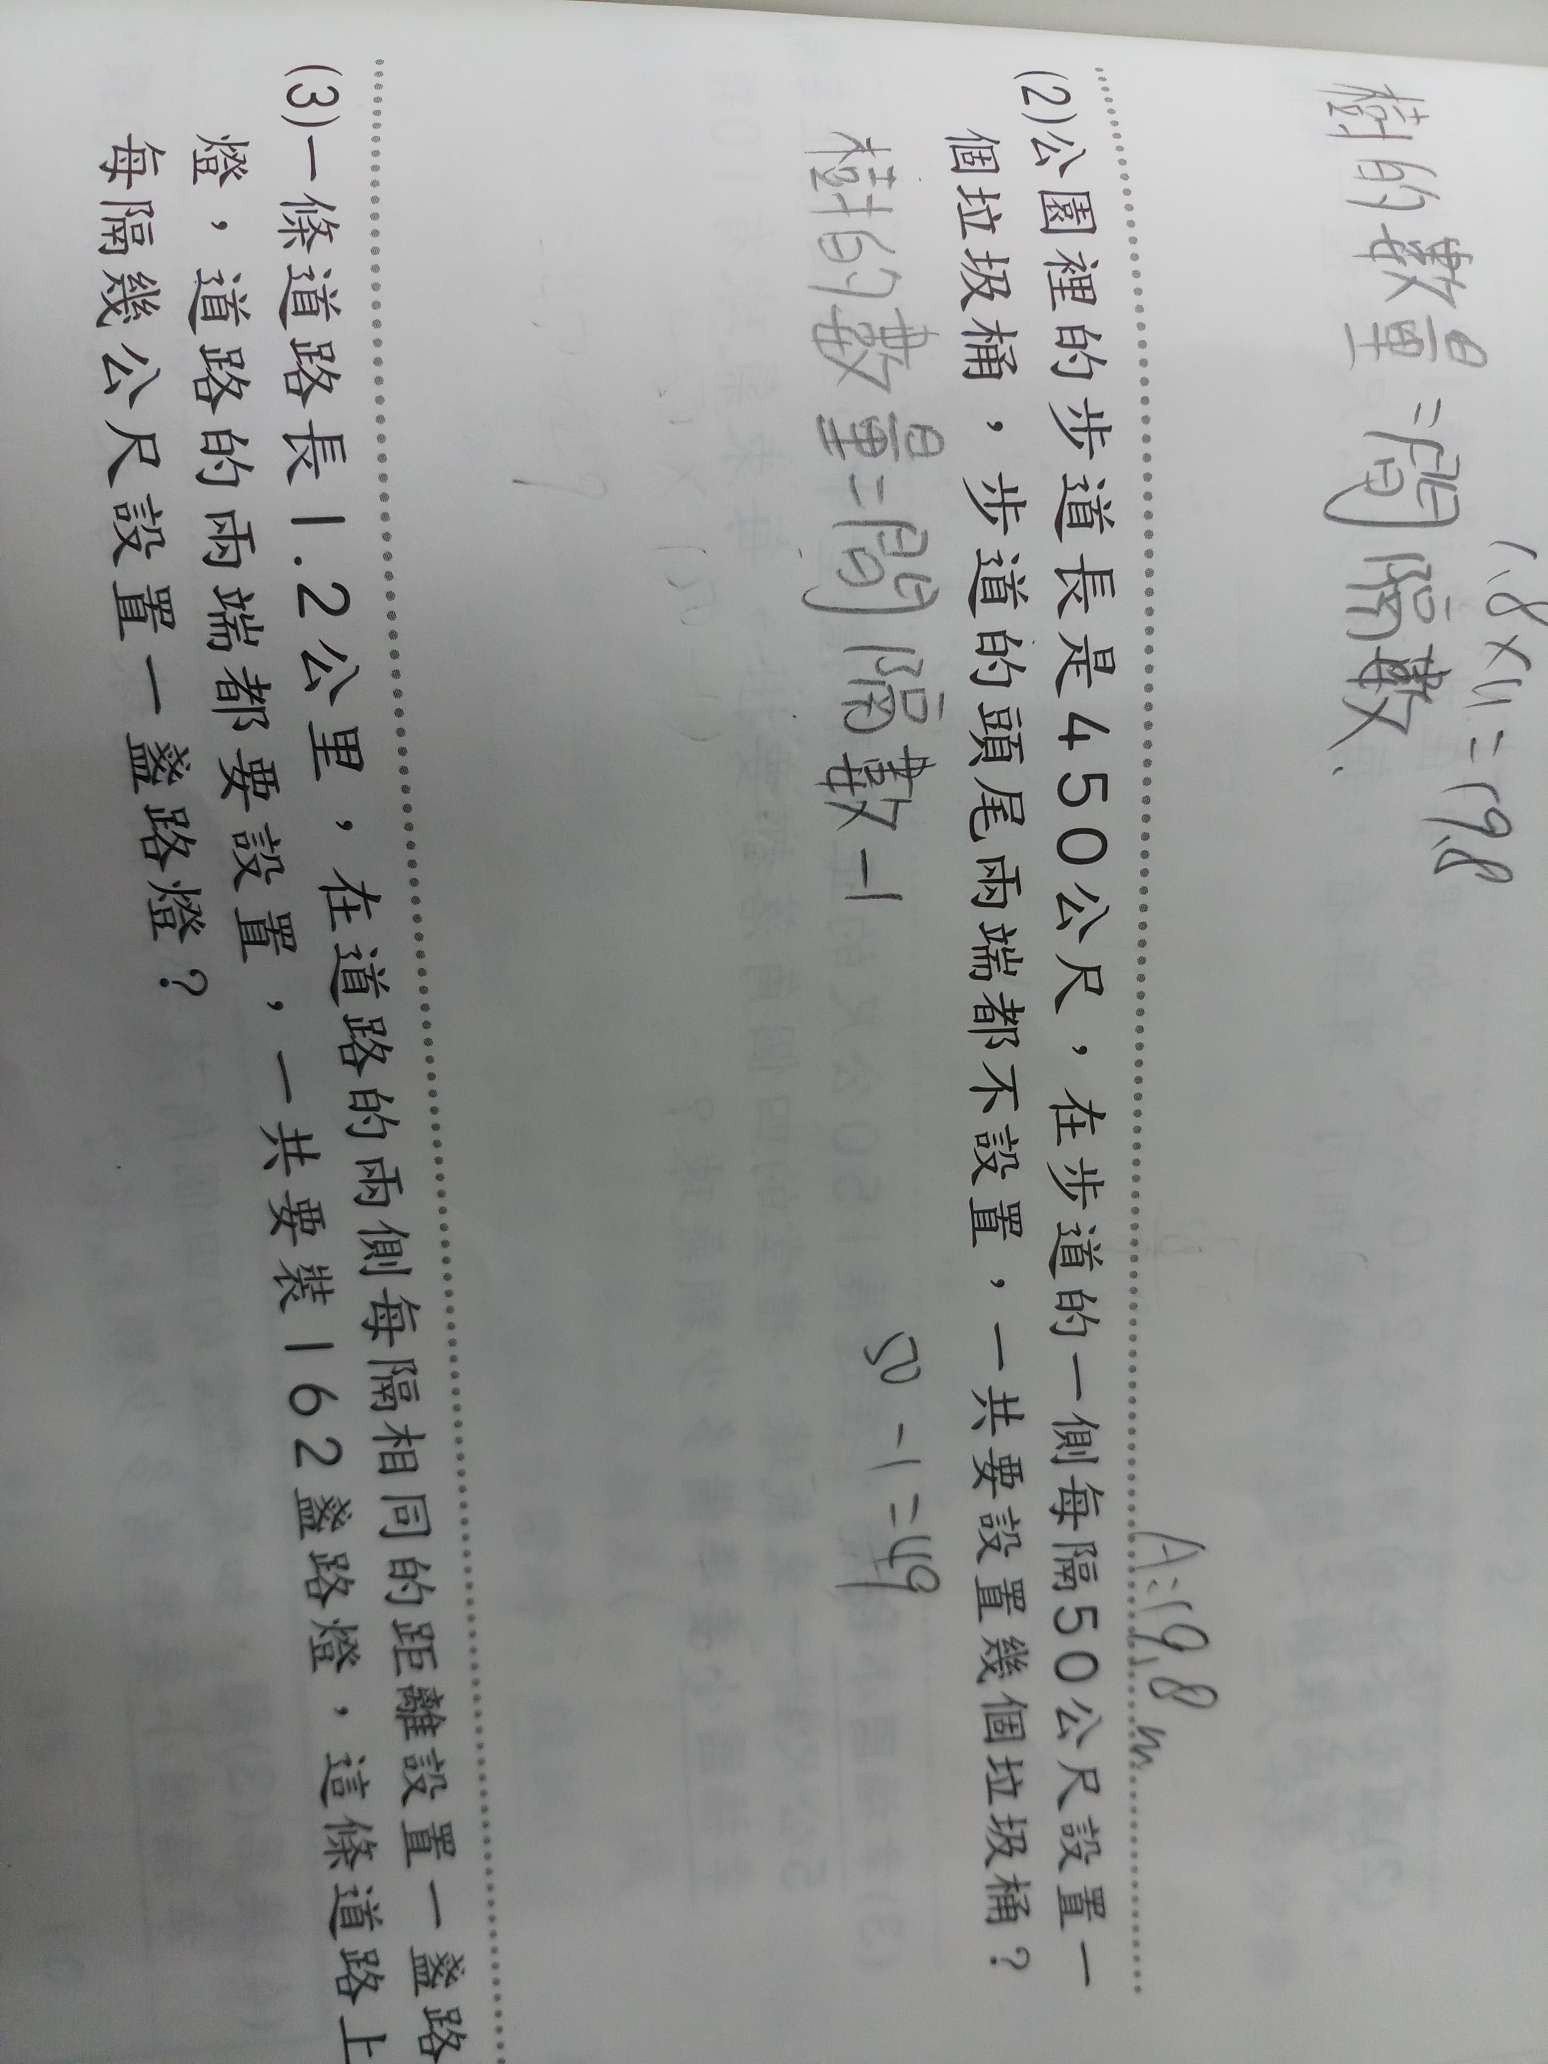 1.8×11=19.8
樹的數量=間隔數
A:19.8m
(2)公園裡的步道長是450公尺，在步道的一側每隔50公尺設置一
個垃圾桶，步道的頭尾兩端都不設置，一共要設置幾個垃圾桶？
樹的數量=間隔數-1
50-1=49
(3)一條道路長1.2公里，在道路的兩側每隔相同的距離設置一盞路
燈，道路的兩端都要設置，一共要裝162盞路燈，這條道路上
每隔幾公尺設置一盞路燈？